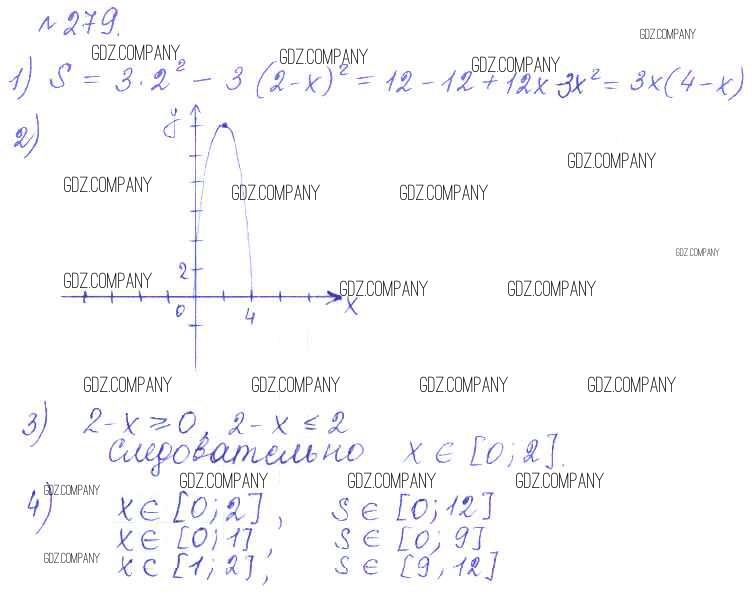 №279.
GDZ.COMPANY
GDZ.COMPANY GDZ.COMPANY GDZ.COMPANY
1) S = 3·2² − 3(2−x)² = 12−12+12x−3x² = 3x(4−x)
2)
y
GDZ.COMPANY
GDZ.COMPANY GDZ.COMPANY GDZ.COMPANY
GDZ.COMPANY
2
GDZ.COMPANY GDZ.COMPANY GDZ.COMPANY
0 4 x
GDZ.COMPANY GDZ.COMPANY GDZ.COMPANY GDZ.COMPANY
3) 2−x ≥ 0, 2−x ≤ 2
следовательно x ∈ [0; 2].
GDZ.COMPANY GDZ.COMPANY GDZ.COMPANY GDZ.COMPANY
4) x ∈ [0; 2], S ∈ [0; 12]
x ∈ [0; 1], S ∈ [0; 9]
GDZ.COMPANY
x ∈ [1; 2], S ∈ [9, 12]